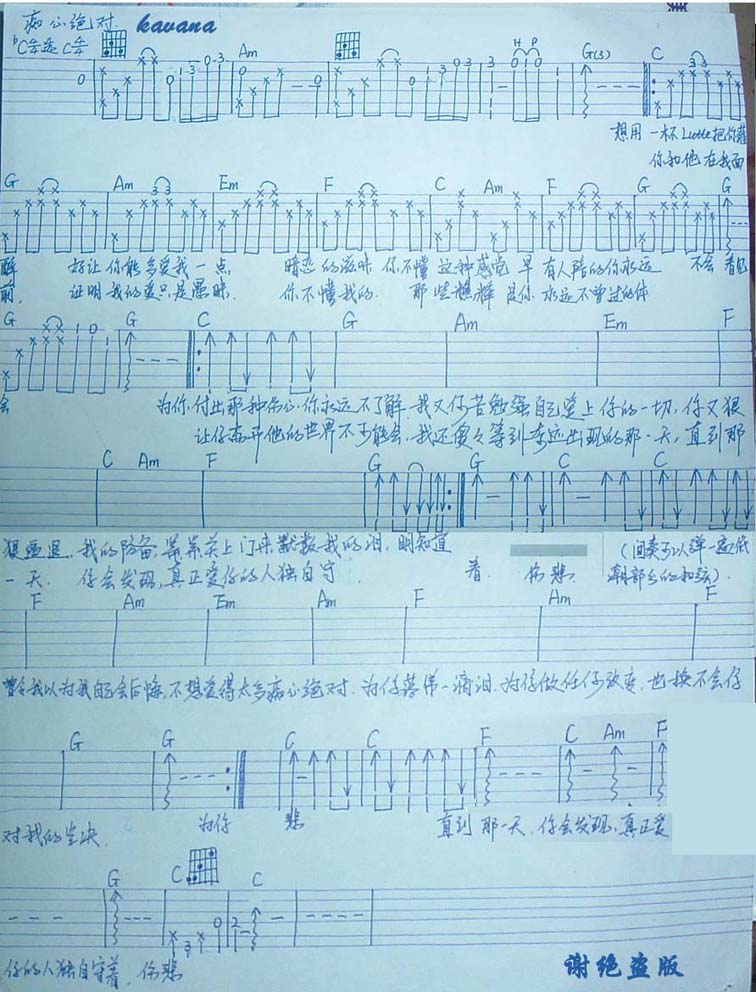 痴心绝对 kavana
♭C弦选C弦
Am H P G(3) C
想用一杯Latte把你灌
你和他在我面
G Am Em F C Am F G G
醉 好让你能多爱我一点 暗恋的滋味 你不懂 这种感觉 早有人陪的你永远 不会 看似
前, 证明我的爱只是愚昧. 你不懂我的. 那些憔悴 是你 永远不曾过的体
G G C G Am Em F
会 为你付出那种伤心你永远不了解 我又何苦勉强自己爱上你的一切, 你又狠
让你离开他的世界不可能会, 我还傻傻等到奇迹出现的那一天, 直到那
C Am F G G C C
狠逼退 我的防备 静静关上门来默数我的泪, 明知道
一天. 你会发现, 真正爱你的人独自守 着. 伤悲 (间奏可以弹一遍低
潮部分的和弦).
F Am Em Am F Am F
曾经我以为我自己会后悔, 不想爱得太多痴心绝对. 为你落第一滴泪. 为你做任何改变, 也换不会你
G G C C F C Am F
对我的坚决 为你 悲 直到那一天. 你会发现, 真正爱
G C C
你的人独自守着, 伤悲
谢绝盗版